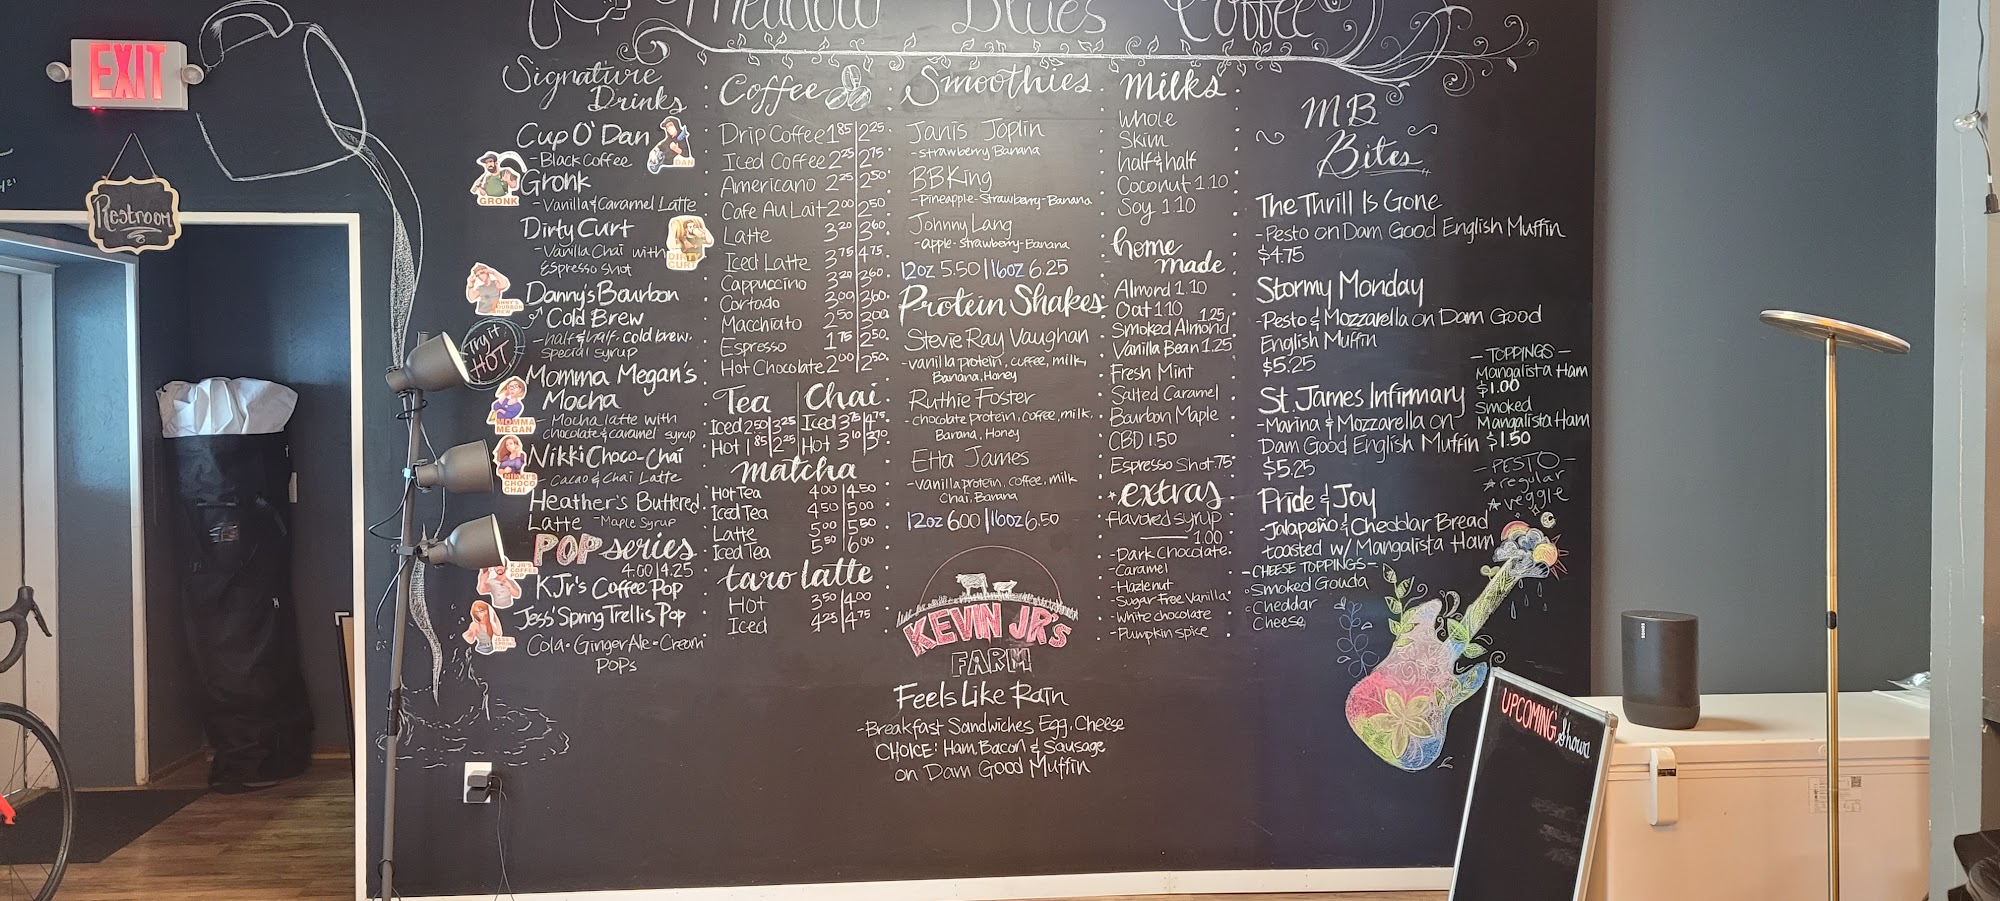 Meadow Blues Coffee
EXIT
Restroom
Signature
Drinks
Cup O' Dan
DAN
-Black Coffee
Gronk
GRONK
-Vanilla & Caramel Latte
Dirty Curt
DIRTY
CURT
-Vanilla Chai with
Espresso Shot
Danny's Bourbon
Cold Brew
-half & half. cold brew.
special syrup
Try it
HOT
Momma Megan's
Mocha
MOMMA
MEGAN
-Mocha latte with
chocolate & caramel syrup
Nikki Choco-Chai
NIKKI'S
CHOCO
CHAI
-Cacao & Chai Latte
Heather's Buttered
Latte -Maple Syrup
POP series
4.00|4.25
K JR'S
COFFEE
POP
KJr's Coffee Pop
Jess' Spring Trellis Pop
Cola-Ginger Ale-Cream
POPs
Coffee
Drip Coffee 1.85|2.25
Iced Coffee 2.25|2.75
Americano 2.25|2.50
Cafe Au Lait 2.00|2.50
Latte 3.20|3.60
Iced Latte 3.75|4.75
Cappuccino 3.20|3.60
Cortado 3.00|3.60
Macchiato 2.50|3.00
Espresso 1.75|2.50
Hot Chocolate 2.00|2.50
Tea
Iced 2.50|3.25
Hot 1.85|2.25
Chai
Iced 3.75|4.75
Hot 3.10|3.70
Matcha
Hot Tea 4.00|4.50
Iced Tea 4.50|5.00
Latte 5.00|5.50
Iced Tea 5.50|6.00
taro latte
Hot 3.50|4.00
Iced 4.25|4.75
Smoothies
Janis Joplin
-Strawberry Banana
BB King
-Pineapple-Strawberry-Banana
Johnny Lang
-apple-strawberry-Banana
12oz 5.50|16oz 6.25
Protein Shakes
Stevie Ray Vaughan
-vanilla protein, coffee, milk,
Banana, Honey
Ruthie Foster
-chocolate protein, coffee, milk,
Banana, Honey
Etta James
-vanilla protein, coffee, milk
Chai, Banana
12oz 6.00|16oz 6.50
KEVIN JR'S
FARM
Feels Like Rain
-Breakfast Sandwiches, Egg, Cheese
CHOICE: Ham, Bacon & Sausage
on Dam Good Muffin
Milks
Whole
Skim
half & half
Coconut 1.10
Soy 1.10
home
made
Almond 1.10
Oat 1.10
Smoked Almond 1.25
Vanilla Bean 1.25
Fresh Mint
Salted Caramel
Bourbon Maple
CBD 1.50
Espresso Shot .75
*extras
flavored syrup
1.00
-Dark Chocolate
-Caramel
-Hazlenut
-Sugar Free Vanilla
-White chocolate
-Pumpkin spice
MB
Bites
The Thrill Is Gone
-Pesto on Dam Good English Muffin
$4.75
Stormy Monday
-Pesto & Mozzarella on Dam Good
English Muffin
$5.25
St. James Infirmary
-Marina & Mozzarella on
Dam Good English Muffin
$5.25
Pride & Joy
-Jalapeño & Cheddar Bread
toasted w/ Mangalista Ham
-CHEESE TOPPINGS-
Smoked Gouda
Cheddar
Cheese
-TOPPINGS-
Mangalista Ham
$1.00
Smoked
Mangalista Ham
$1.50
-PESTO-
*regular
*veggie
UPCOMING Shows
SONOS